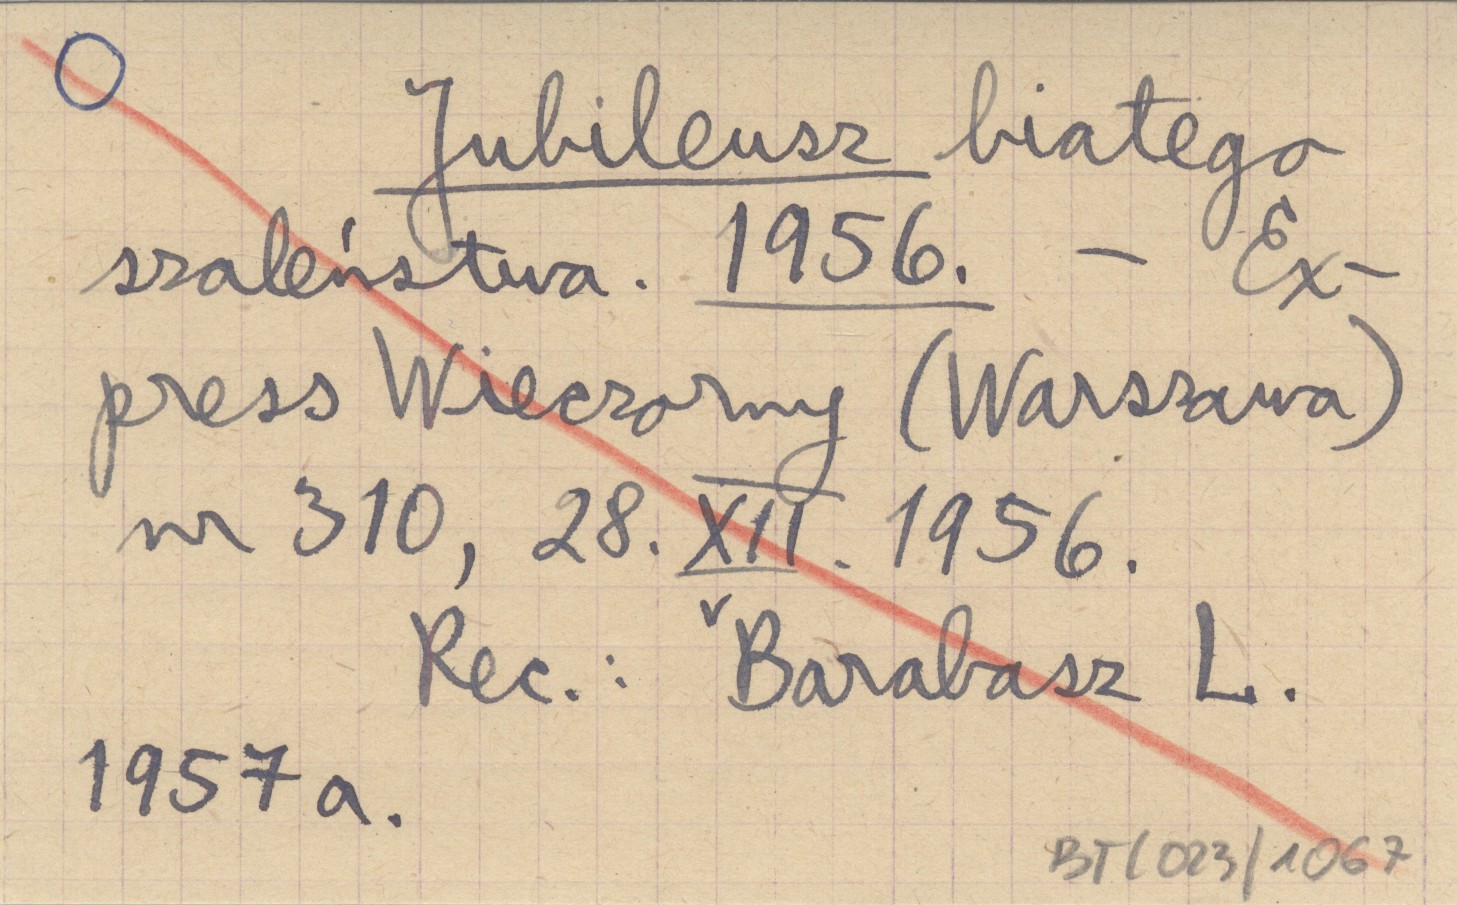 Jubileusz białego
szaleństwa. 1956. - Ex-
press Wieczorny (Warszawa)
nr 310, 28. XII. 1956.
Rec.: Barabasz L.
1957a.
BT/023/1067